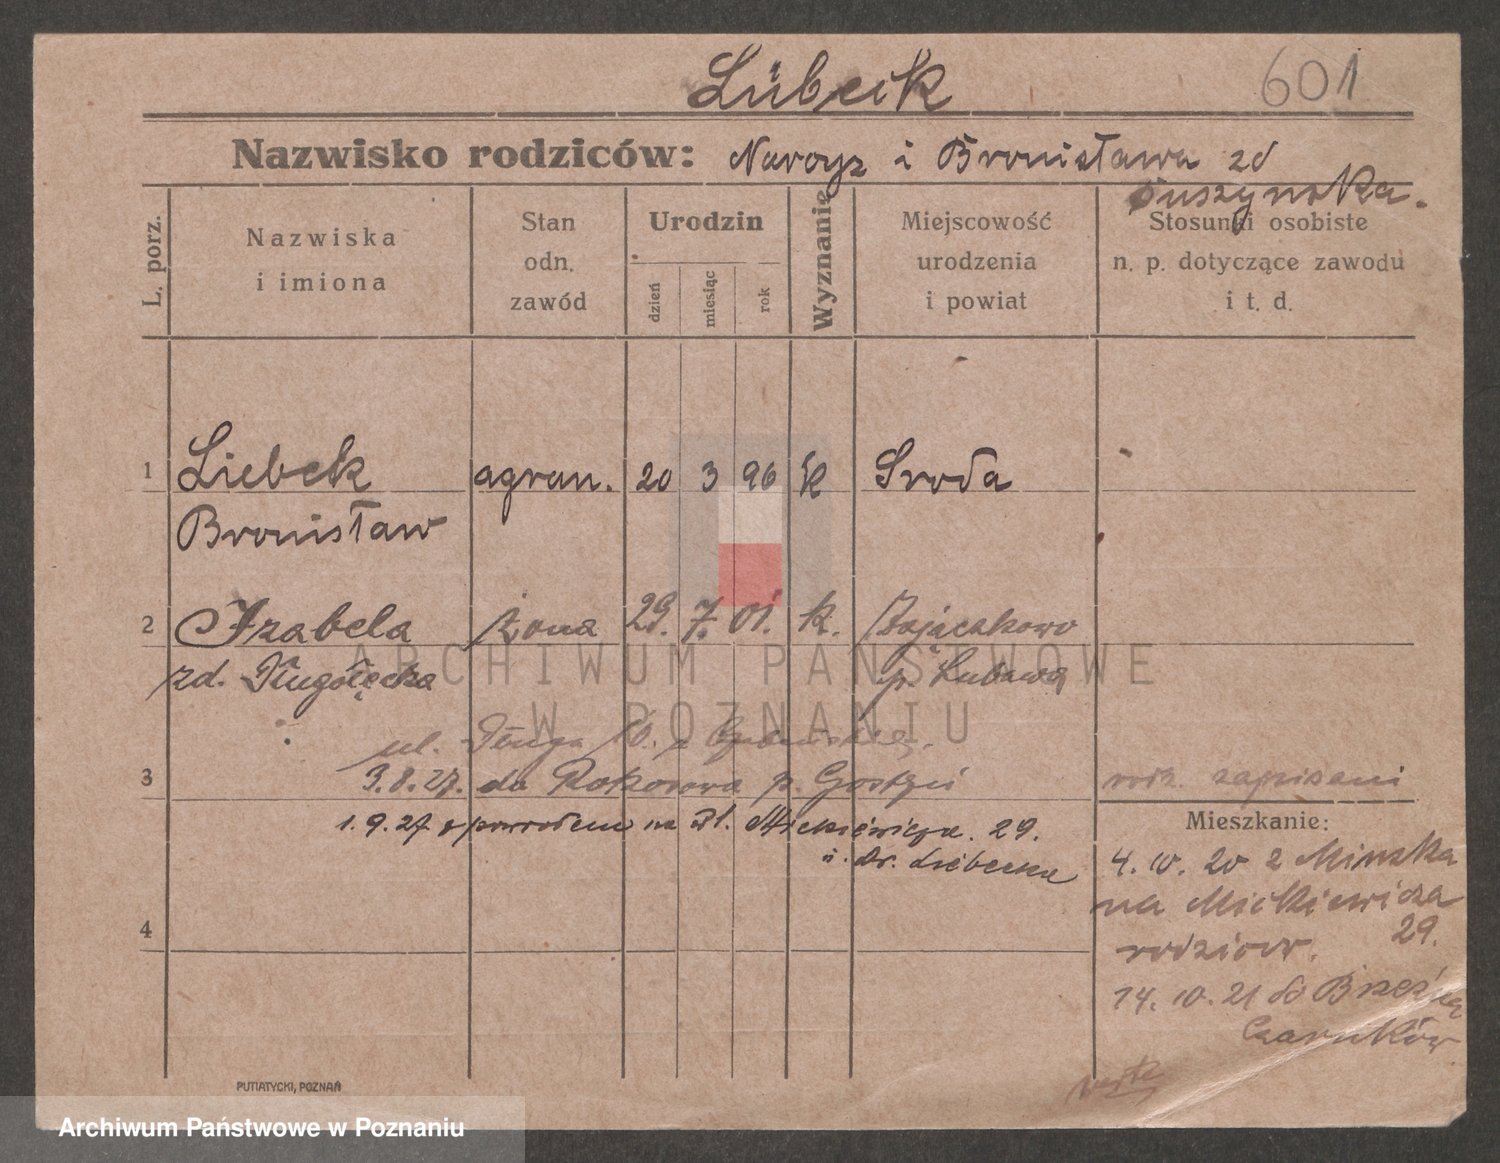 Lübeck
601
Nazwisko rodziców: Narcyz i Bronisława zd
Suszyńska.
L. porz.
Nazwiska
i imiona
Stan
odn.
zawód
Urodzin
dzień
miesiąc
rok
Wyznanie
Miejscowość
urodzenia
i powiat
Stosunki osobiste
n. p. dotyczące zawodu
i t. d.
1 Liebek agron. 20 3 96 k Sroda
Bronisław
2 Izabela żona 29. 7. 01. k. Zajączkowo
zd. Długołęcka p. Lubawa
ul. Długa 10.
3 3.8.27. do Rokosowa p. Gostyń
zapisani
1.9.27 z powrotem na Pl. Mickiewicza. 29.
Mieszkanie:
4. 10. 20 z Minska
na Mickiewicza
29.
rodziców.
4
14. 10. 21 do
Czarnków
PUTIATYCKI, POZNAŃ
ARCHIWUM PAŃSTWOWE
W POZNANIU
Archiwum Państwowe w Poznaniu